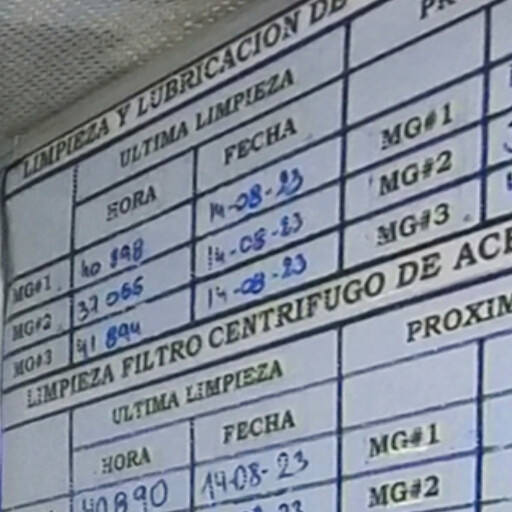 LIMPIEZA Y LUBRICACION DE
ULTIMA LIMPIEZA
HORA FECHA
MG#1 40 898 14-08-23 MG#1
MG#2 37 066 14-08-23 MG#2
MG#3 41 894 14-08-23 MG#3
LIMPIEZA FILTRO CENTRIFUGO DE
ULTIMA LIMPIEZA
HORA FECHA
40890 14-08-23 MG#1
MG#2